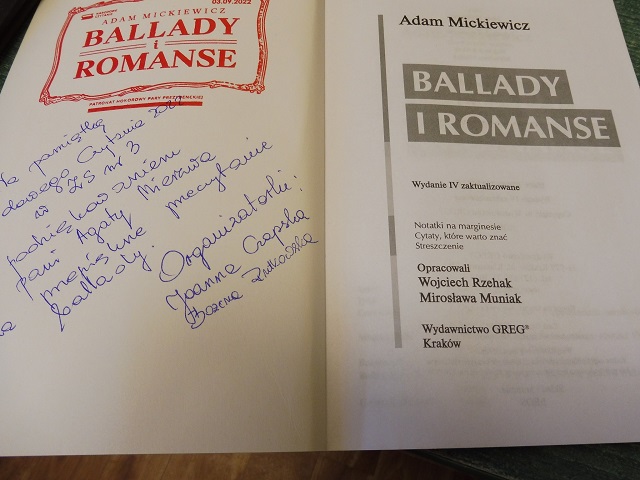 NARODOWE CZYTANIE
03.09.2022
ADAM MICKIEWICZ
BALLADY
i
ROMANSE
PATRONAT HONOROWY PARY PREZYDENCKIEJ
pamiątkę
Czytania 2022
w ZS nr 3
podziękowaniem
Pani Agaty Mierzwa
piękne przeczytanie
ballady.
Organizatorki:
Joanna Czapska
Bożena
Adam Mickiewicz
BALLADY
I ROMANSE
Wydanie IV zaktualizowane
Notatki na marginesie
Cytaty, które warto znać
Streszczenie
Opracowali
Wojciech Rzehak
Mirosława Muniak
Wydawnictwo GREG®
Kraków